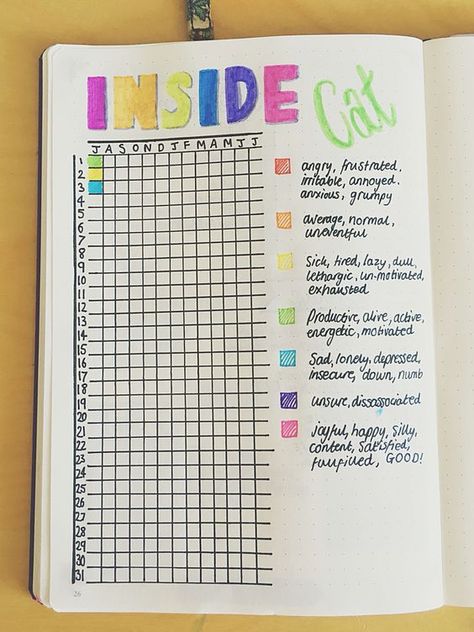 INSIDE
Cat
J A S O N D J F M A M J J
1
2
3
4
5
6
7
8
9
10
11
12
13
14
15
16
17
18
19
20
21
22
23
24
25
26
27
28
29
30
31
angry, frustrated,
irritable, annoyed,
anxious, grumpy
average, normal,
uneventful
Sick, tired, lazy, dull,
lethargic, un-motivated,
exhausted
Productive, alive, active,
energetic, motivated
Sad, lonely, depressed,
insecure, down, numb
unsure, dissassociated
joyful, happy, silly,
content, satisfied,
fullfilled, GOOD!
26